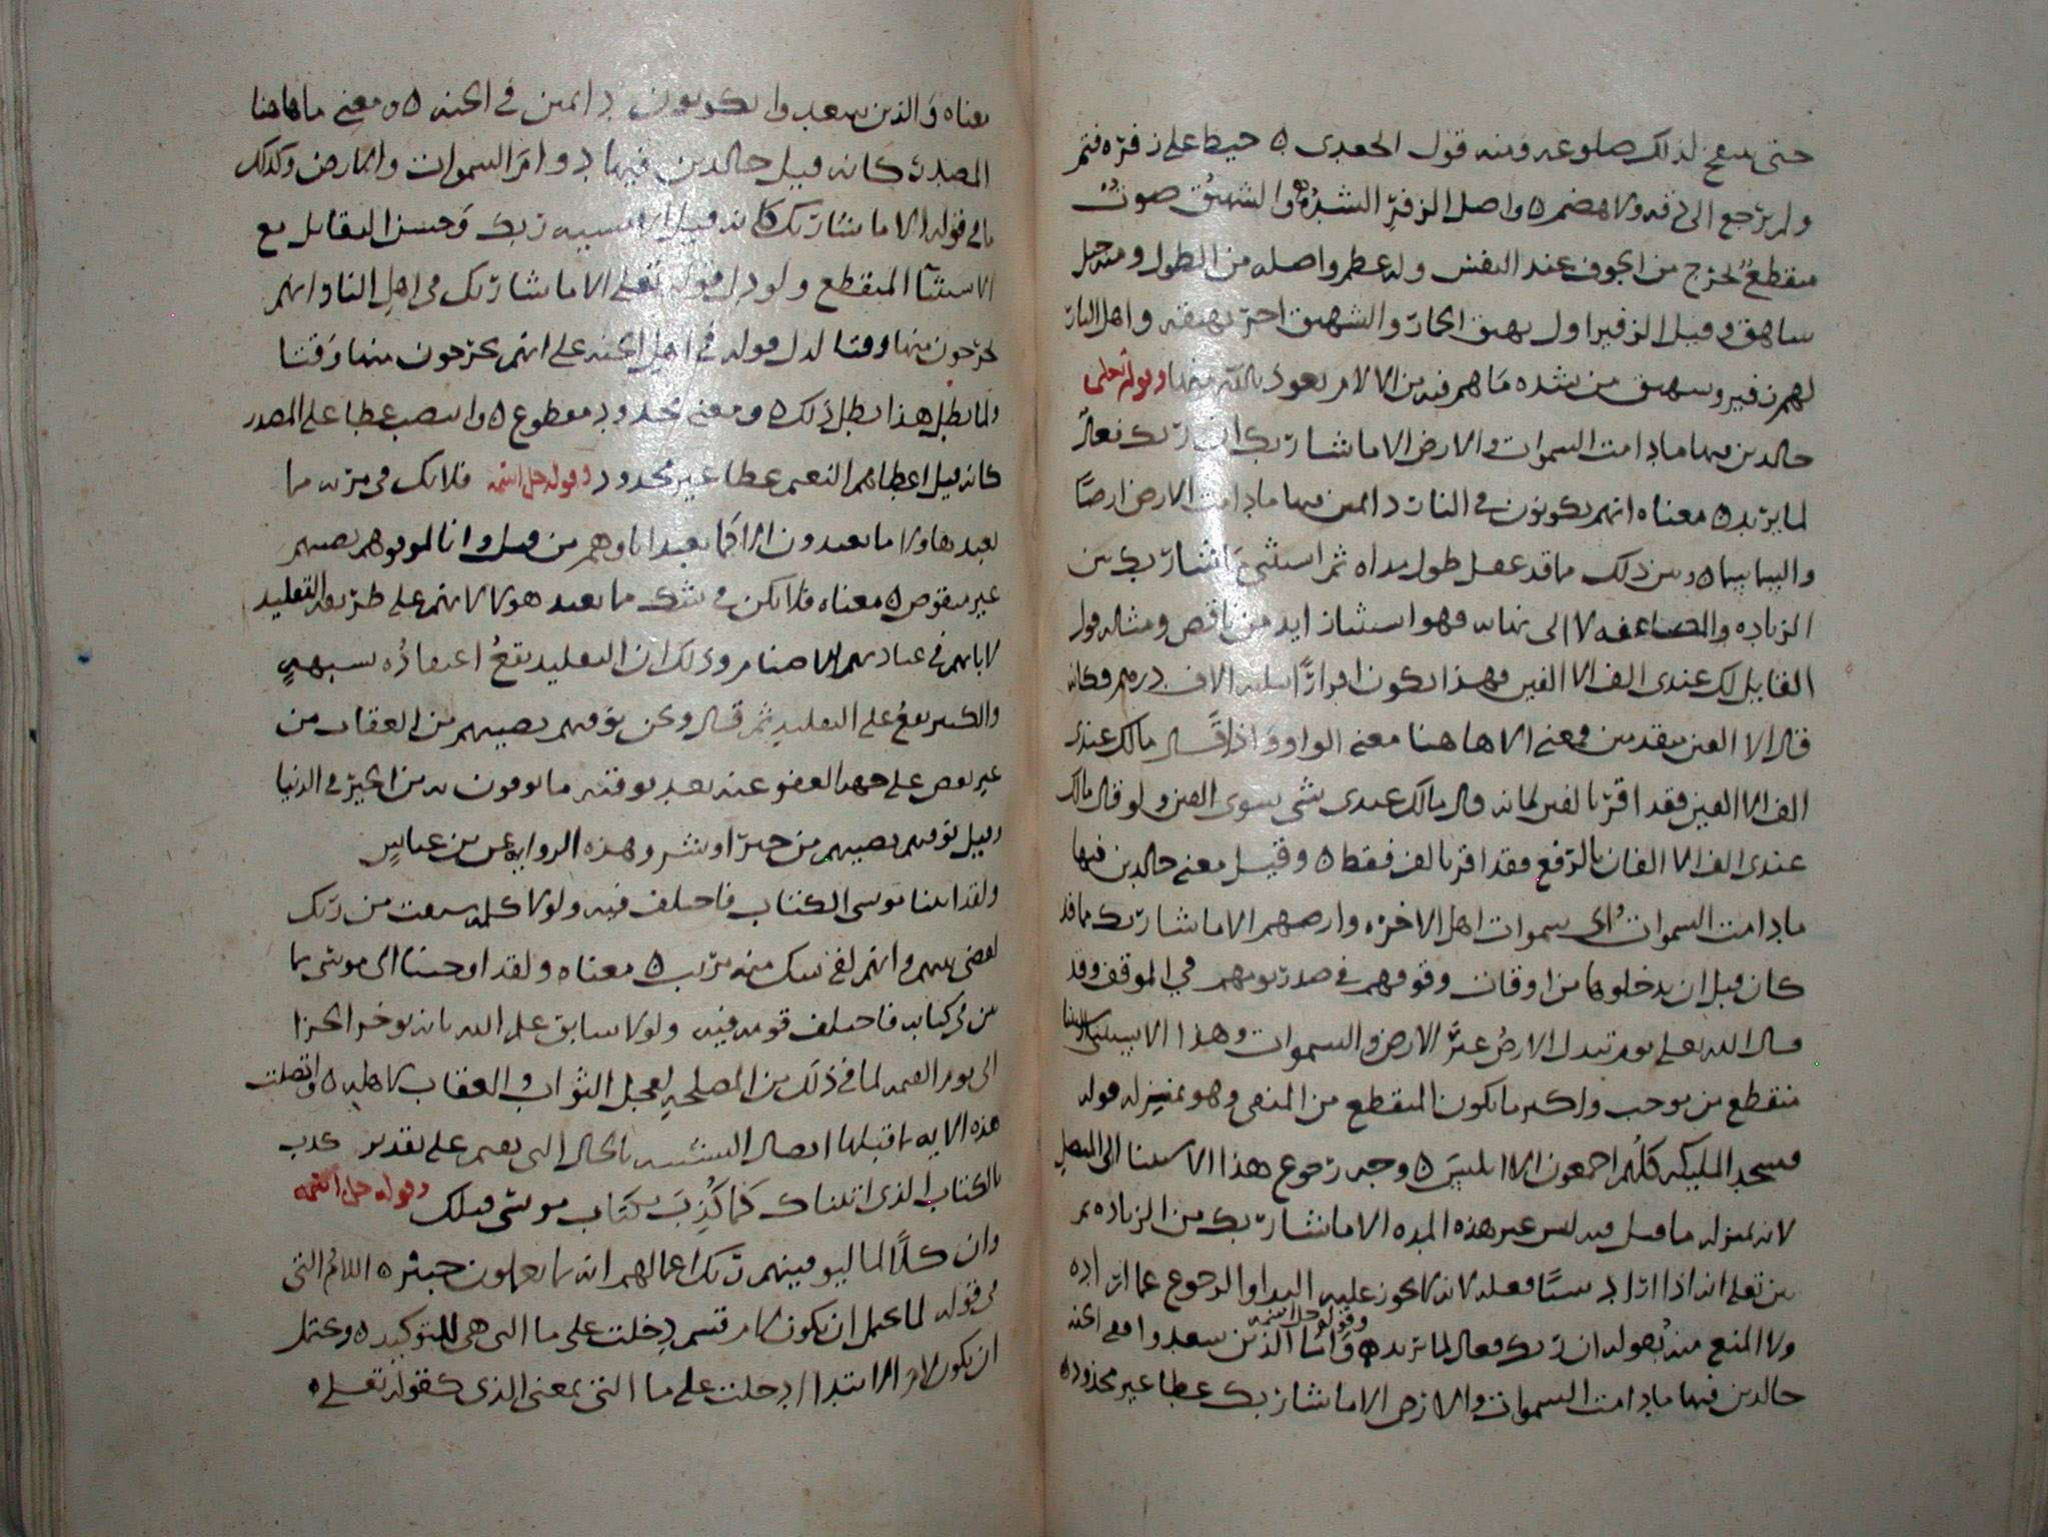 حتى ينتفخ لذلك ضلوعه ومنه قول الجعدي ٥ خيط على زفرة فتم
ولم يرجع الى دقه ولا هضم ٥ واصل الزفر الشده ٥ والشهيق صوت
منقطع يخرج من الجوف عند النفس وله عظم واصله من الطول ومنه جبل
ساهق وقيل الزفير اول نهيق الحمار والشهيق اخر نهيقه واهل النار
لهم زفير وسهيق من شده ما هم فيه من الالام نعوذ بالله منها وقوله تعلى
خالدين فيها مادامت السموات والارض الا ما شا ربك ان ربك فعال
لما يريد ٥ معناه انهم يكونون في النار دائمين فيها مادامت الارض ارضًا
والسما سما ٥ ومن ذلك ما قد عقل طول مداه ثم استثنى ما شا ربك من
الزياده والمضاعفه لا الى نهايه فهو استثنا زايد من ناقص ومثاله قول
القايل لك عندي الف الا الفين فهذا يكون اقرارًا بثلاثه الاف درهم فكانه
قال الا الفين تقدمت ومعنى الا هاهنا معنى الواو واذا قال مالك عندي
الف الا الفين فقد اقر بالفين لانه قال مالك عندي شي سوى الفين ولو قال مالك
عندي الف الا الفان بالرفع فقد اقر بالف فقط ٥ وقيل معنى خالدين فيها
مادامت السموات اي سموات اهل الاخره وارضهم الا ما شا ربك مما قد
كان قبل ان يدخلوها من اوقات وقوفهم في صدر يومهم في الموقف وقد
قال الله تعلى يوم تبدل الارض غير الارض والسموات وهذا الاستثنا
منقطع من موجب واكثر ما يكون المنقطع من المنفي وهو بمنزله قوله
فسجد المليكه كلهم اجمعون الا ابليس ٥ وجه رجوع هذا الاستثنا الى المتصل
لانه بمنزله ما قيل فيه ليس غير هذه المده الا ما شا ربك من الزياده ثم
بين تعلى انه اذا اراد شيًا فعله لانه لا يجوز عليه البدا والرجوع عما اراده
ولا المنع منه بقوله ان ربك فعال لما يريد ٥ وقوله جل اسمه واما الذين سعدوا ففي الجنه
خالدين فيها مادامت السموات والارض الا ما شا ربك عطا غير مجذوذ ٥
معناه والذين سعدوا يكونون دائمين في الجنه ٥ ومعنى ما هاهنا
المصدر كانه قيل خالدين فيها دوام السموات والارض وكذلك
ما في قوله الا ما شا ربك كانه قيل الا مشيه ربك وحسن التقابل مع
الاستثنا المنقطع ولو دل قوله تعلى الا ما شا ربك في اهل النار انهم
يخرجون منها وقتا لدل قوله في اهل الجنه على انهم يخرجون منها وقتا
ولما بطل هذا بطل ذلك ٥ ومعنى مجذوذ مقطوع ٥ وانتصب عطا على المصدر
كانه قيل اعطاهم النعيم عطا غير مجذوذ وقوله جل اسمه فلا تك في مريه مما
يعبد هاولا ما يعبدون الا كما يعبد اباوهم من قبل وانا لموفوهم نصيبهم
غير منقوص ٥ معناه فلا تكن في شك مما يعبد هولا لانهم على طريقه التقليد
لابايهم في عبادتهم الاصنام وذلك ان التقليد يقع اعتقاده بشبههٍ
والكبير يقع على التقليد ثم قال ونحن نوفيهم نصيبهم من العقاب من
غير نقص على جهه العفو عنه بعد توفيه ما يوفون به من الخير في الدنيا
وقيل نوفيهم نصيبهم من خير او شر وهذه الروايه عن بن عباس
ولقد اتينا موسى الكتاب فاختلف فيه ولولا كلمه سبقت من ربك
لقضي بينهم وانهم لفي شك منه مريب ٥ معناه ولقد اوحينا الى موسى بما
بين في كتابه فاختلف قومه فيه ولولا سابق علم الله بانه يوخر الجزا
الى يوم القيمه لما في ذلك من المصلحه لعجل الثواب والعقاب لاهله ٥ واتصلت
هذه الايه بما قبلها اتصال التشبيه بالحال التي تعم على تقدير كذب
بالكتاب الذي اتيناك كما كُذِبَ بكتاب موسى قبلك وقوله جل اسمه
وان كلًا لما ليوفينهم ربك اعمالهم انه بما يعملون خبير ٥ اللام التي
في قوله لما يحتمل ان يكون لام قسم دخلت على ما التي هي للتوكيد ٥ ويحتمل
ان يكون لام الابتدا دخلت على ما التي بمعنى الذي كقوله تعلى ٥